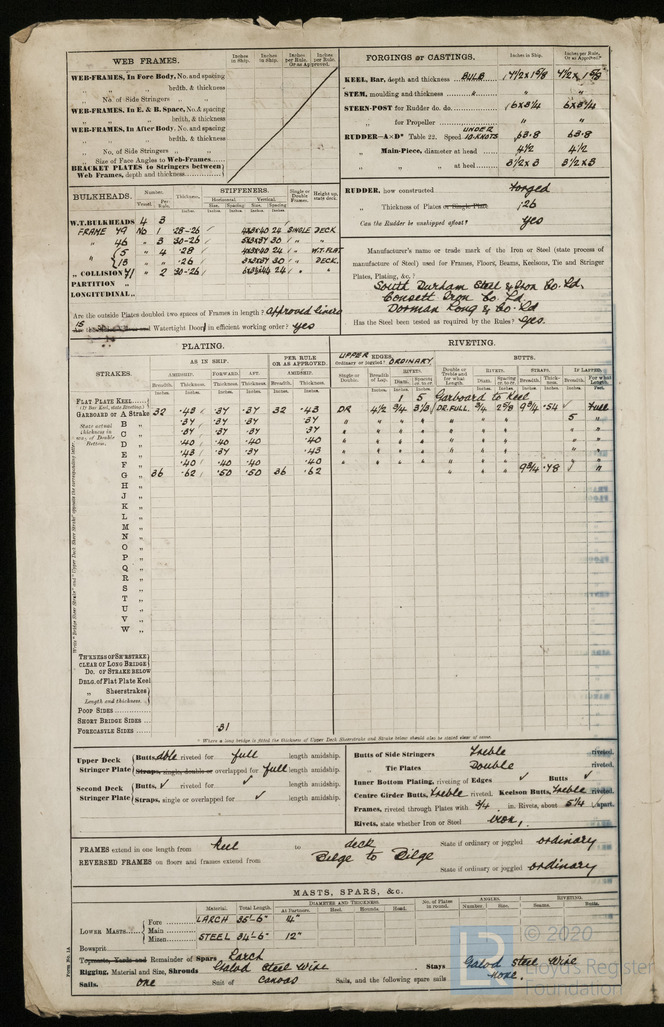 WEB FRAMES.
Inches in Ship. Inches in Ship. Inches per Rule, Or as Approved. Inches per Rule,
WEB-FRAMES, In Fore Body, No. and spacing
" " brdth. & thickness
No. of Side Stringers " "
WEB-FRAMES, In E. & B. Space, No. and spacing
" " brdth. & thickness
WEB-FRAMES, In After Body, No. and spacing
" " brdth. & thickness
" No. of Side Stringers " "
" Size of Face Angles to Web-Frames
BRACKET PLATES to Stringers between
Web Frames, depth and thickness
FORGINGS or CASTINGS. Inches in Ship. Inches per Rule, Or as Approved.
KEEL, Bar, depth and thickness BULB
STEM, moulding and thickness "
STERN-POST for Rudder do. do. 6 x 3 1/4 6 x 3 1/4
" for Propeller " "
RUDDER—A×D* Table 22. Speed UNDER 10 KNOTS 68.8 68.8
" Main-Piece, diameter at head 4 1/2 4 1/2
" " at heel 3 1/2 x 3 3 1/2 x 3
RUDDER, how constructed forged
" Thickness of Plates or Single Plate .26
Can the Rudder be unshipped afloat? yes
Manufacturer's name or trade mark of the Iron or Steel (state process of
manufacture of Steel) used for Frames, Floors, Beams, Keelsons, Tie and Stringer
Plates, Plating, &c.?
South Durham Steel & Iron Co. Ld.
Consett Iron Co. Ld
Dorman Long & Co. Ld
Has the Steel been tested as required by the Rules? Yes.
BULKHEADS. Number. Vessel. Per Rule. Thickness. STIFFENERS. Horizontal. Size. Spacing Vertical. Size. Spacing Single or Double Frames. Height up, state deck.
W.T. BULKHEADS 4 3
FRAME 49 No 1 .28-.26 24 SINGLE DECK
" 46 " 3 .30-.26 30 " "
" 5 " 4 .28 24 " W.T. FLAT
" 15 " .26 30 " DECK.
" COLLISION 41 " 2 .30-.26 24 " "
PARTITION "
LONGITUDINAL "
Are the outside Plates doubled two spaces of Frames in length? approved liners
Is the Watertight Door in efficient working order? yes
PLATING.
STRAKES. AS IN SHIP. PER RULE OR AS APPROVED.
AMIDSHIP. FORWARD. AFT. AMIDSHIP.
Breadth. Thickness. Thickness. Thickness. Breadth. Thickness.
RIVETING.
UPPER EDGES, Ordinary or joggled? ORDINARY BUTTS.
Single or Double. Breadth of Lap. RIVETS. Diam. Spacing cr. to cr. Double or Treble and for what Length. RIVETS. Diam. Spacing cr. to cr. STRAPS. Breadth. Thickness. IF LAPPED. Breadth. For what Length.
FLAT PLATE KEEL 1 5 Garboard to Keel
(If Bar Keel, state Riveting)
GARBOARD OR A Strake 32 .43 .37 .37 32 .43 DR 4 1/2 3/4 3 1/3 DR.FULL. 3/4 2 5/8 9 3/4 .54 ✓ Full
State actual thickness in way of Double Bottom.
B " .37 .37 .37 .37 5 "
C " .37 .37 .37 .37
D " .40 .40 .40 .40
E " .43 .37 .37 .40
F " .40 .40 .40 .40
G " 36 .62 .50 .50 36 .62 9 3/4 .78 "
H "
J "
K "
L "
M "
N "
O "
P "
Q "
R "
S "
T "
U "
V "
W "
TH'KNESS OF SH'RSTRKE
CLEAR OF LONG BRIDGE
Do. OF STRAKE BELOW
DBLG. of Flat Plate Keel
" Sheerstrakes
Length and thickness.
POOP SIDES
SHORT BRIDGE SIDES
FORECASTLE SIDES .31
* Where a long bridge is fitted the thickness of Upper Deck Sheerstrake and Strake below should also be stated clear of same.
Upper Deck Stringer Plate Butts, dble riveted for full length amidship.
Straps, single, double or overlapped for full length amidship.
Second Deck Stringer Plate Butts, ✓ riveted for ✓ length amidship.
Straps, single or overlapped for ✓ length amidship.
Butts of Side Stringers treble riveted.
" Tie Plates Double riveted.
Inner Bottom Plating, riveting of Edges ✓ Butts ✓
Centre Girder Butts, treble riveted. Keelson Butts, treble riveted.
Frames, riveted through Plates with 3/4 in. Rivets, about 5 1/4 apart.
Rivets, state whether Iron or Steel iron,
FRAMES extend in one length from keel to deck State if ordinary or joggled ordinary
REVERSED FRAMES on floors and frames extend from Bilge to Bilge
State if ordinary or joggled ordinary
MASTS, SPARS, &c.
Material. Total Length. DIAMETER AND THICKNESS. At Partners. Heel. Hounds Head. No. of Plates in round. ANGLES. Number. Size. RIVETING. Seams. Butts.
LOWER MASTS Fore LARCH 35'-6" 14"
Main
Mizen STEEL 34'-6" 12"
Bowsprit
Topmasts, Yards and Remainder of Spars Larch
Rigging, Material and Size, Shrouds Galvd Steel Wire Stays Galvd Steel Wire
Sails. one Suit of canvas Sails, and the following spare sails none.
Form No. 1A
LR
© 2020
Lloyd's Register
Foundation